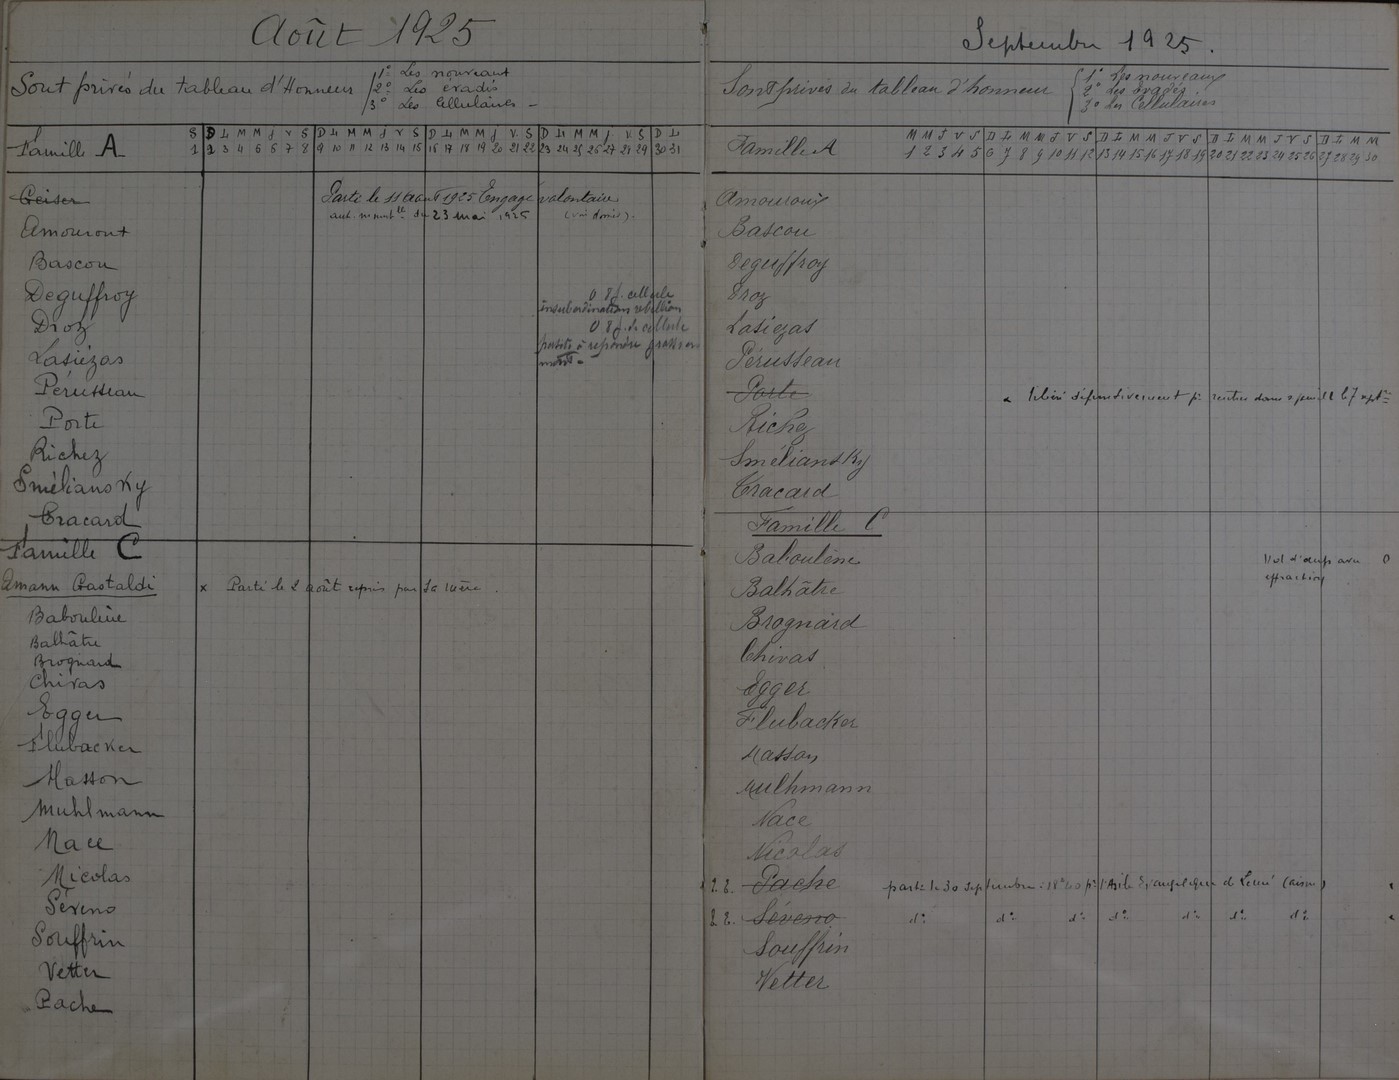 Août 1925
Sont privés du tableau d'Honneur
1° Les nouveaux
2° Les évadés
3° Les Cellulaires -
S D L M M J V S D L M M J V S D L M M J V S D L M M J V S D L
Famille A 1 2 3 4 5 6 7 8 9 10 11 12 13 14 15 16 17 18 19 20 21 22 23 24 25 26 27 28 29 30 31
Geiser Parti le 11 août 1925 Engagé volontaire
aut. minist lle du 23 mai 1925 (voir dossier).
Amouroux
Bascou
Deguffroy 0 8 j. cellule
insubordination rebellion
Droz 0 8 j. de cellule
Lasiézas à répondre
Pérusseau
Porte
Richez
Sméliansky
Cracard
Famille C
Amann Castaldi x Parti le 2 août repris par sa mère.
Baboulène
Balhâtre
Brognard
Chivas
Egger
Flubacker
Masson
Muhlmann
Nace
Nicolas
Séveno
Souffrin
Vetter
Pache
Septembre 1925.
Sont privés du tableau d'honneur
1° Les nouveaux
2° Les évadés
3° Les Cellulaires
M M J V S D L M M J V S D L M M J V S D L M M J V S D L M M
Famille A 1 2 3 4 5 6 7 8 9 10 11 12 13 14 15 16 17 18 19 20 21 22 23 24 25 26 27 28 29 30
Amouroux
Bascou
Deguffroy
Droz
Lasiezas
Pérusseau
Porte libéré définitivement pr rentrer dans sa famille le 7 sept
Richez
Sméliansky
Cracard
Famille C
Baboulène Vol d'œufs avec 0
effraction
Balhâtre
Brognard
Chivas
Egger
Flubacker
Masson
Mulhmann
Nace
Nicolas
Pache parti le 30 septembre pr l'Asile Evangélique de Lemé (Aisne)
Séveno do do do do do do do
Souffrin
Vetter